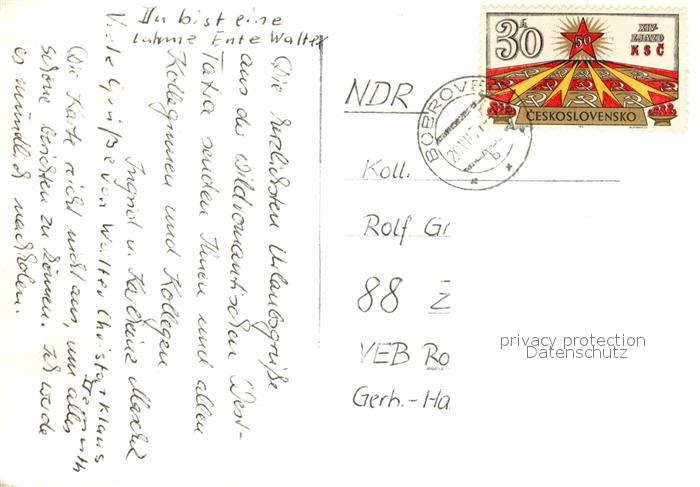 Du bist eine
lahme Ente Walter
Die herzlichsten Urlaubsgrüße
aus der wildromantischen West-
Tatra senden Ihnen und allen
Kolleginnen und Kollegen
Ingrid u. Karlheinz
Viele Grüße von Walter Christa Klaus
Die Karte reicht nicht aus, um alles
schöne berichten zu können. Ich werde
es mündlich nachholen.
30h
50
XIV.
ZJAZD
KSČ
ČESKOSLOVENSKO
BOBROVEC
NDR
Koll.
Rolf Gr
88 Z
VEB Ro
Gerh.-Ha
privacy protection
Datenschutz